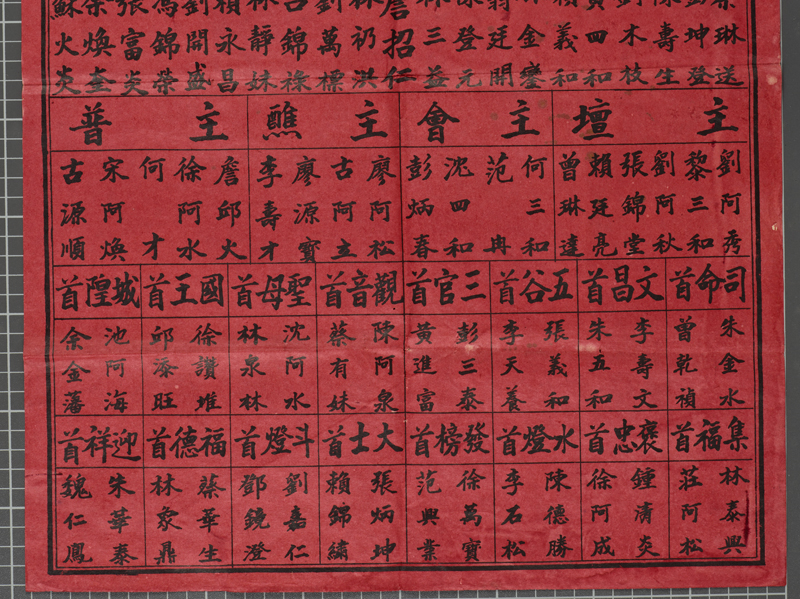 琳送
坤登
壽生
木枝
四和
義和
金鑾
廷開
登元
三益
詹招仁
礽洪
萬標
錦祿
靜妹
永昌
開盛
錦榮
富炎
煥奎
蘇火炎
主壇
劉阿秀
黎三和
劉阿秋
張錦堂
賴廷亮
曾琳達
主會
何三和
范冉
沈四和
彭炳春
主醮
廖阿松
古阿立
廖源寶
李壽才
主普
詹邱火
徐阿水
何才
宋阿煥
古源順
司命首
朱金水
曾乾禎
文昌首
李壽文
朱五和
五谷首
張義和
李天養
三官首
彭三泰
黃進富
觀音首
陳阿泉
蔡有妹
聖母首
沈阿水
林泉林
國王首
徐讚堆
邱添旺
城隍首
池阿海
余金藩
集福首
林泰興
莊阿松
褒忠首
鍾清炎
徐阿成
水燈首
陳德勝
李石松
發榜首
徐萬寶
范興業
大士首
張炳坤
賴錦繡
斗燈首
劉嘉仁
鄧鏡澄
福德首
蔡華生
林泉鼎
迎祥首
朱華泰
魏仁鳳